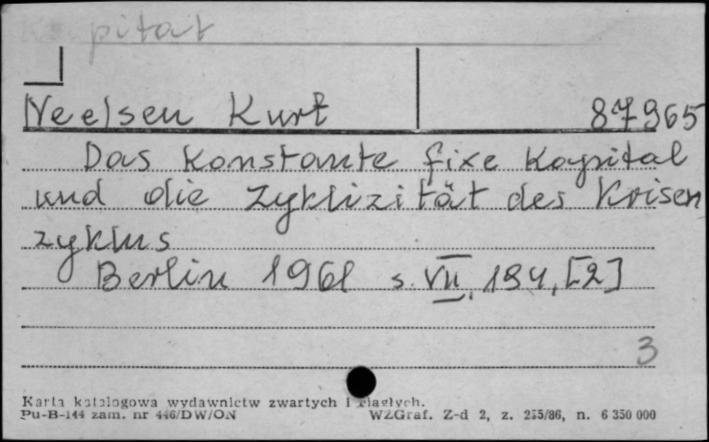 Kapitat
Neelsen Kurt 87965
Das Konstante fixe Kapital
und die Zyklizität des Krisen
zyklus
Berlin 1961 s. VII, 194, [2]
3
Karta katalogowa wydawnictw zwartych i ciągłych.
Pu-B-144 zam. nr 446/DW/ON WZGraf. Z-d 2, z. 255/86, n. 6 350 000